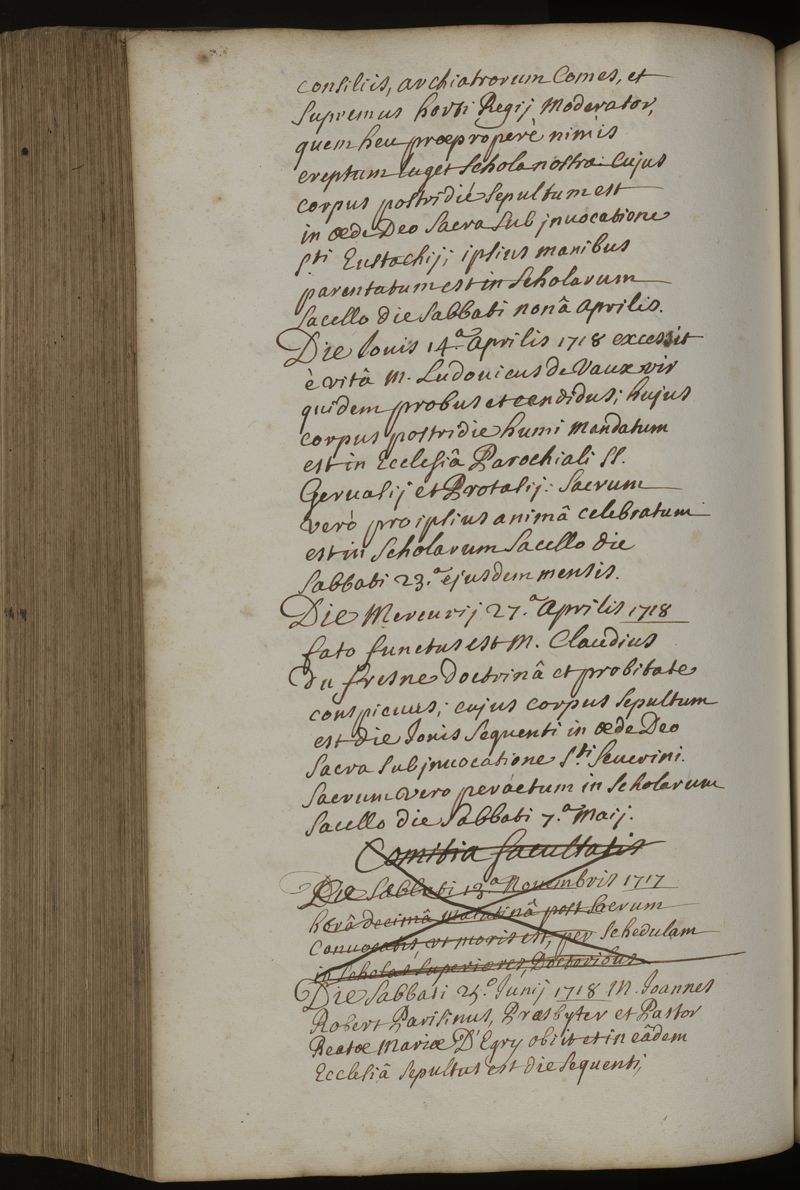 consiliis, archiatrorum Comes, et
Supremus horti Regij Moderator,
quem heu præproperè nimis
ereptum luget Schola nostra: Cujus
corpus postridiè Sepultum est
in æde Deo Sacra Sub jnuocatione
Sti Eustachij; ipsius manibus
parentatum est in Scholarum
Sacello die Sabbati nonâ Aprilis.
Die Iouis 14.a Aprilis 1718 excessit
è vitâ M. Ludouicus de Vaux vir
quidem probus et candidus; hujus
corpus postridie humi Mandatum
est in Ecclesiâ Parochiali SS.
Geruasij et Protasij: Sacrum
verò pro ipsius animâ celebratum
est in Scholarum Sacello die
Sabbati 23.a ejusdem mensis.
Die Mercurij 27.a Aprilis 1718
fato functus est M. Claudius
du fresne doctrinâ et probitate
conspicuus; cujus corpus Sepultum
est die Iouis Sequenti in æde Deo
Sacra Sub jnuocatione Sti Seuerini.
Sacrum vero peráctum in Scholarum
Sacello die Sabbati 7.a Maij.
Comitia facultatis
Die Sabbati 13.a Nouembris 1717
horâ decimâ Matutinâ post Sacrum
Conuocatis, vt moris est, per Schedulam
in Scholas Superiores, Doctoribus
Die Sabbati 25.a Iunij 1718 M. Joannes
Robert Parisinus, Præsbyter et Pastor
Beatæ Mariæ D'Egry obiit et in eâdem
Ecclesiâ Sepultus est die Sequenti;